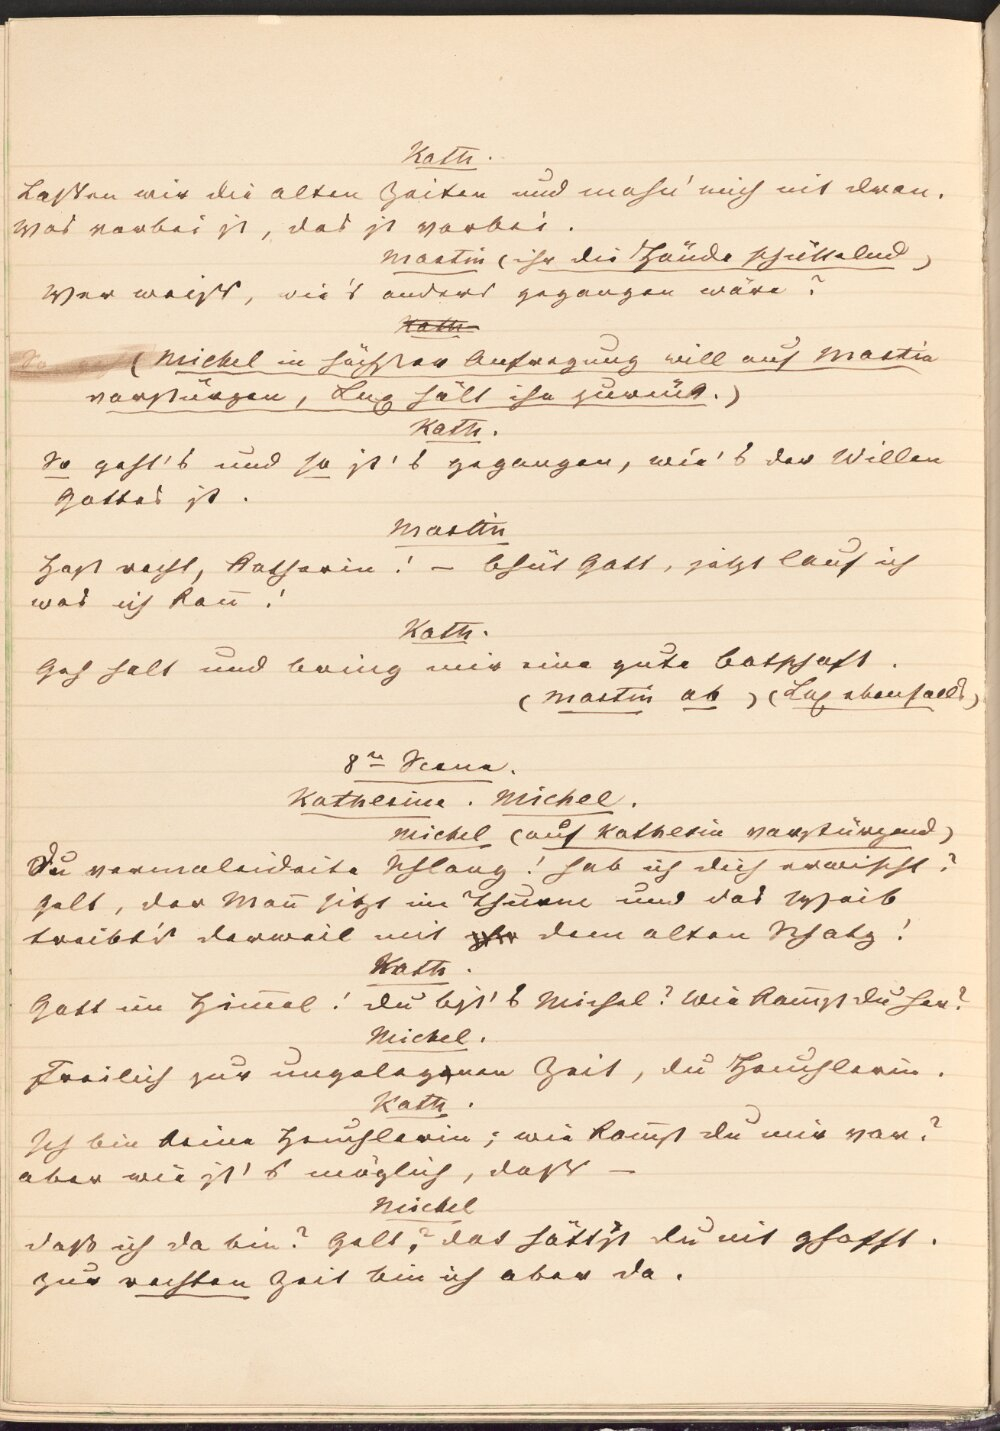 Kath.
Laßen wir die alten Zeiten und mahn' mich nit dran.
Was vorbei ist, das ist vorbei.
Martin (ihr die Hände schüttelnd)
Wer weiß, wie's anders gegangen wäre?
Kath.
So
(Michel in höchster Aufregung will auf Martin
vorstürzen, Lux hält ihn zurück.)
Kath.
So geht's und so ist's gegangen, wie's der Willen
Gottes ist.
Martin
Hast recht, Katharin! – Bhüt Gott, jetzt lauf ich
was ich kan̄!
Kath.
Geh halt und bring mir eine gute Botschaft.
(Martin ab) (Lux ebenfalls)
8te Scene.
Katherine. Michel.
Michel (auf Katherin vorstürzend)
Du vermaleideite Schlang! hab ich dich erwischt?
Gelt, der Man̄ sitzt im Thurme und das Weib
treibt's derweil mit dem alten Schatz!
Kath.
Gott im Him̄el! du bist's Michel? Wie kom̄st du her?
Michel.
Freilich zur ungelegenen Zeit, du Heuchlerin.
Kath.
Ich bin keine Heuchlerin; wie kom̄st du mir vor?
aber wie ist's möglich, daß –
Michel
daß ich da bin? Gelt,? das hättst du nit ghofft.
zur rechten Zeit bin ich aber da.